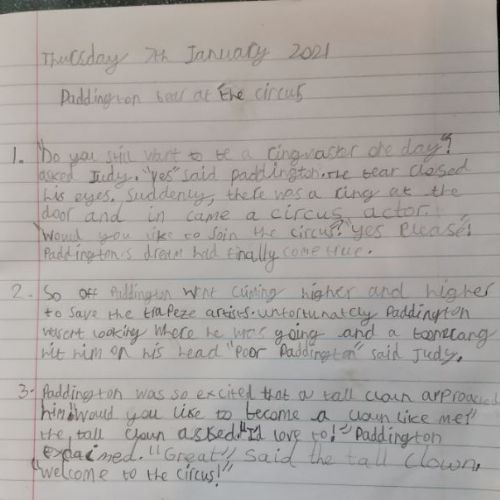 Thursday 7th January 2021
Paddington bear at the circus
1. "Do you still want to be a ringmaster one day"?
asked Judy. "yes" said paddington. The bear closed
his eyes. Suddenly, there was a ring at the
door and in came a circus actor.
"Would you like to join the circus?" "yes please!"
Paddington's dream had finally come true.
2. So off Paddington went climing higher and higher
to save the trapeze artists. unfortunatcly Paddington
wasent looking where he was going and a boomerang
hit him on his head "Poor Paddington" said Judy.
3. Paddington was so excited that a tall clown approached
him. "Would you like to become a clown like me"
the tall clown asked. "I'd love to!" Paddington
expaimed. "Great" said the tall clown,
"welcome to the circus!"